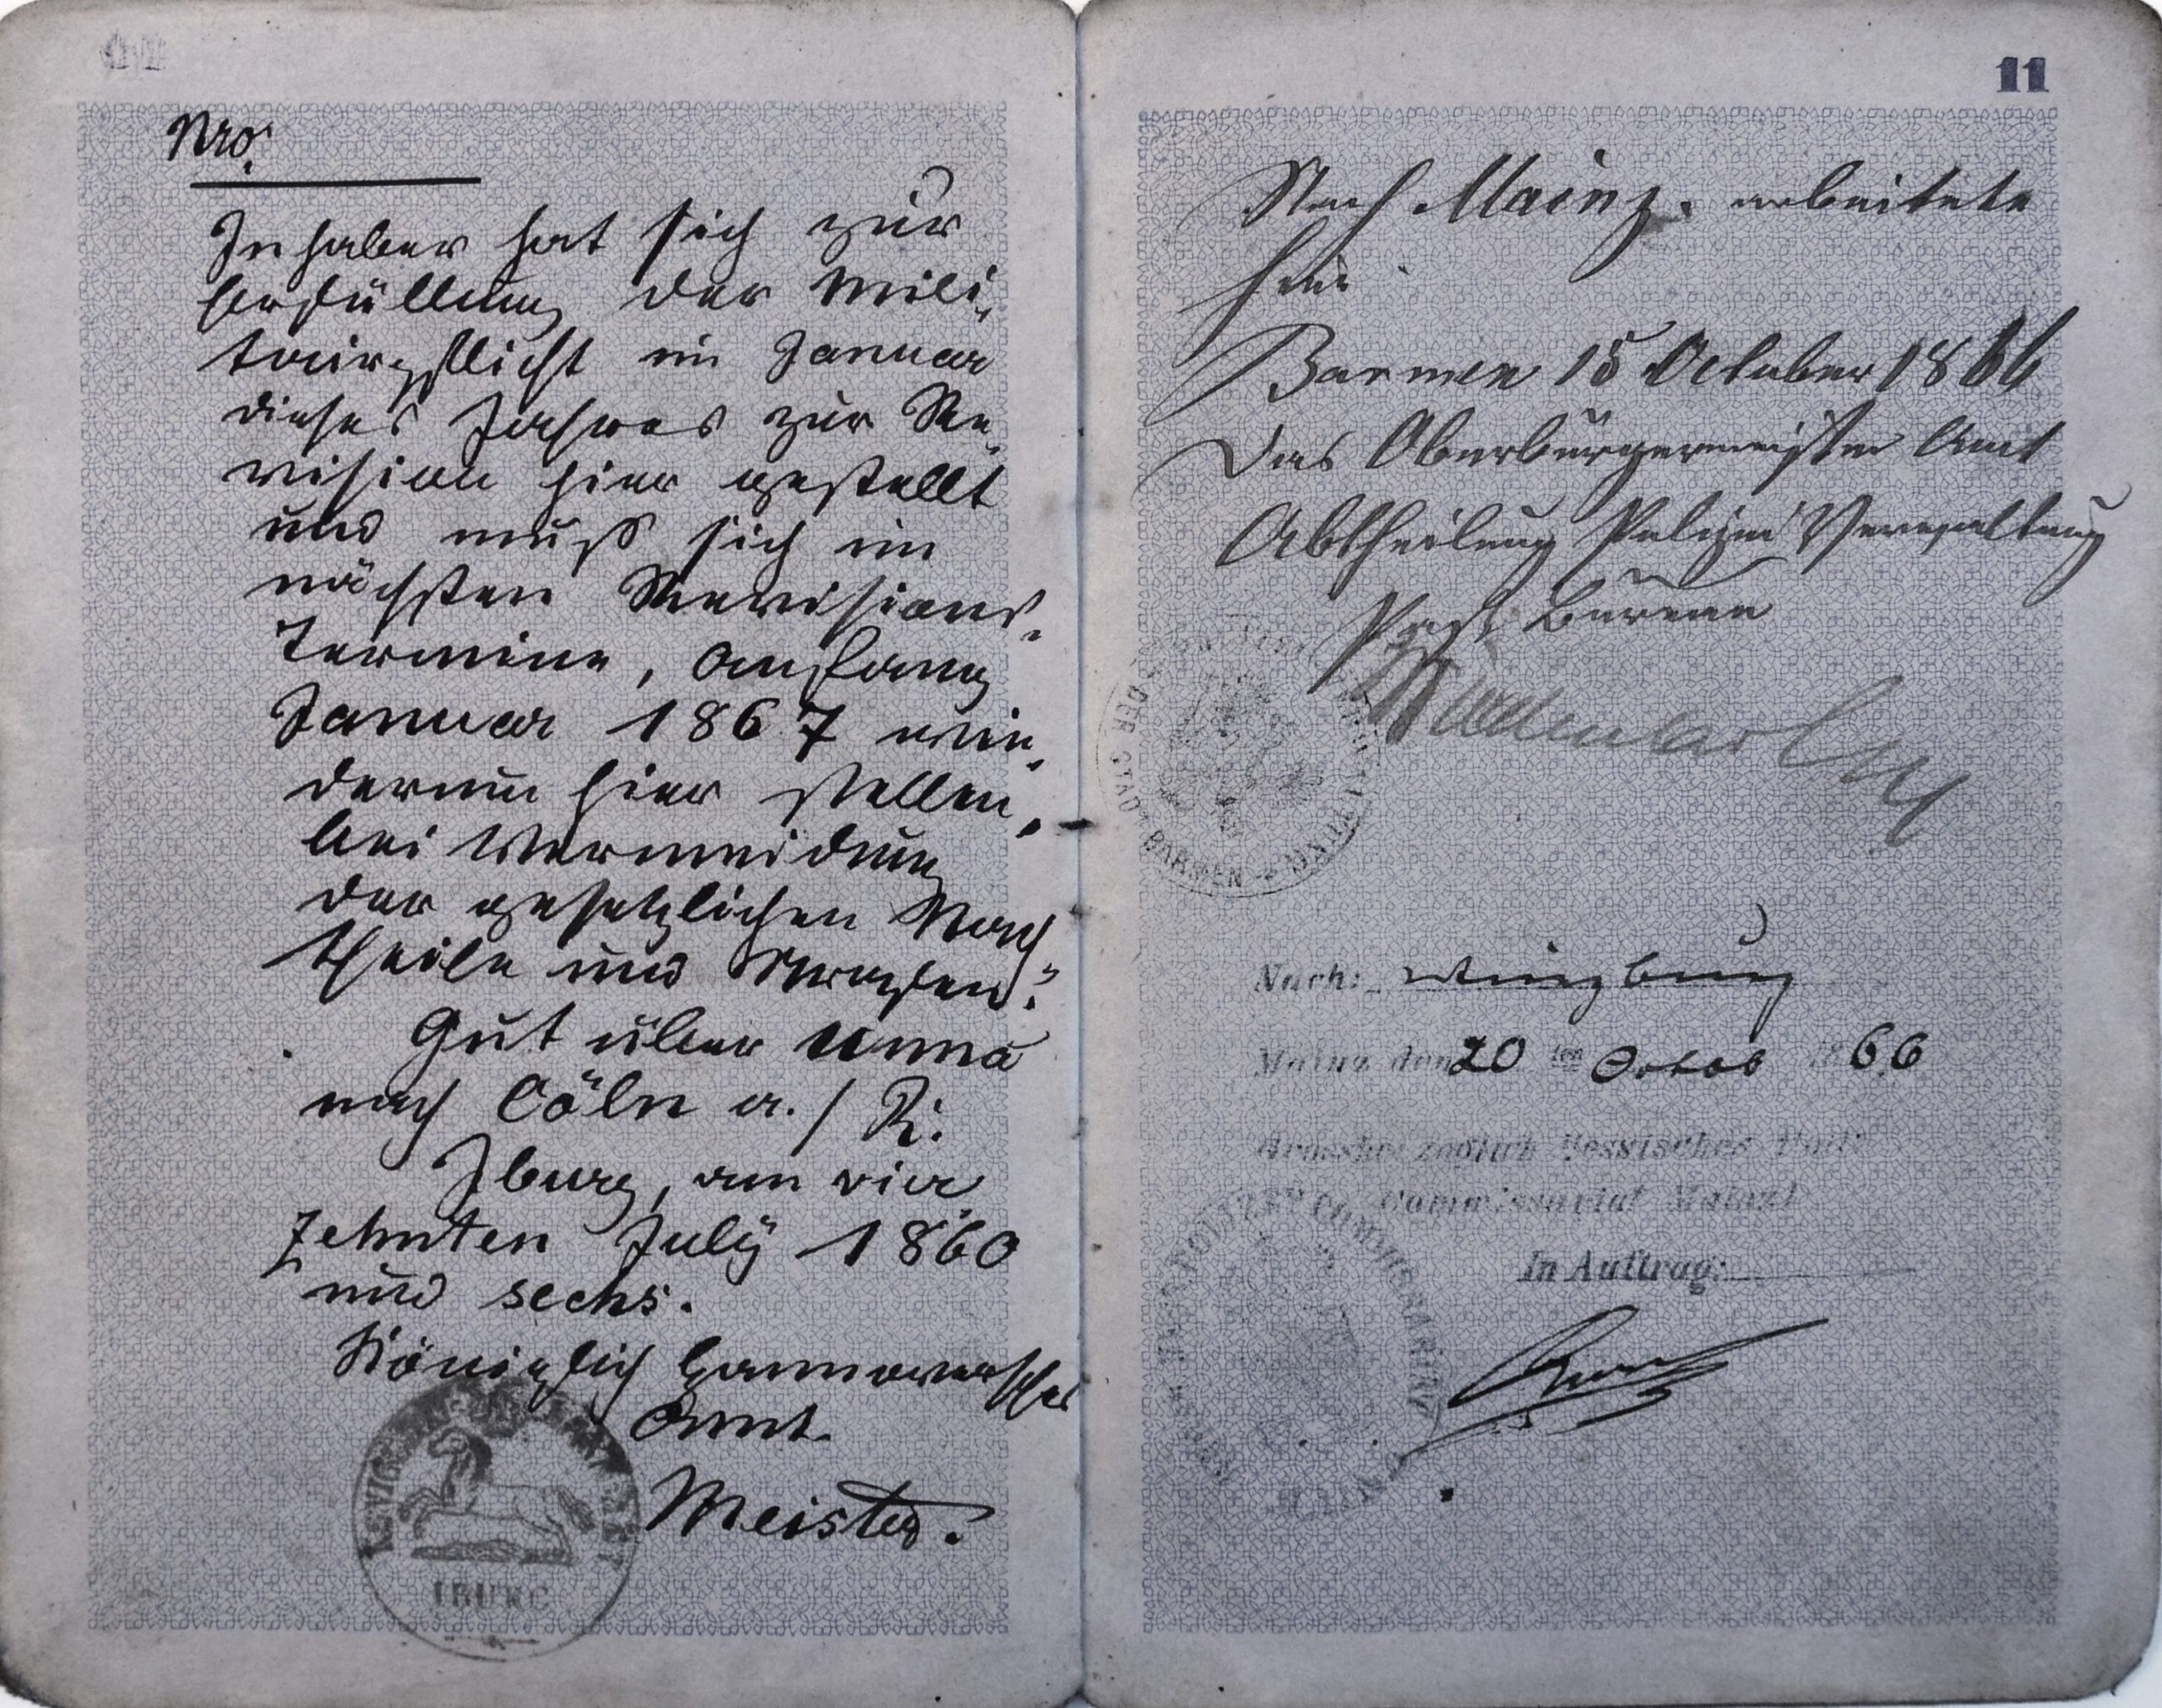 Nro.
Inhaber hat sich zur
Erfüllung der Mili-
tairpflicht im Januar
dieses Jahres zur Re-
vision hier gestellt
und muß sich im
nächsten Revisions-
Termine, Anfang
Januar 1867 wie-
derum hier stellen,
bei Vermeidung
der gesetzlichen Nach-
theile und Strafen.
Gut über Unna
nach Cöln a./R.
Iburg, am vier
zehnten July 1860
und sechs.
Königlich Hannoversches
Amt.
Meister.
IBURG
11
Nach Mainz. arbeitete
hier
Barmen 15 October 1866
Das Oberbürgermeister Amt
Abtheilung Polizei Verwaltung
Paß Bureau
DER STADT BARMEN
Nach: Würzburg
Mainz den 20 ten Octob 1866
Grossherzoglich Hessisches Poli
Commissariat Mainz
In Auftrag: